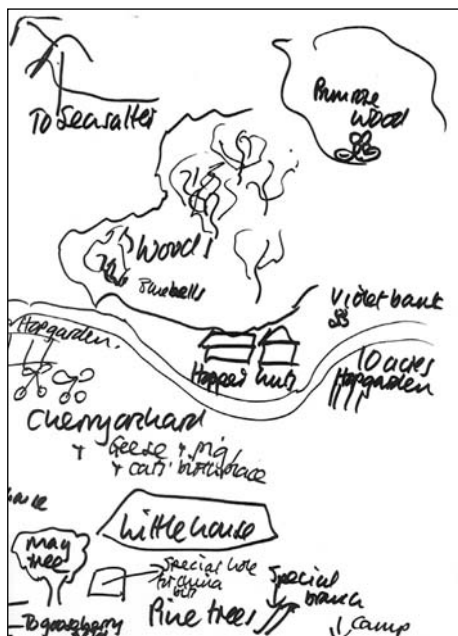 To Seasalter
Primrose
Wood
Wood
Bluebells
Violet bank
Hopgarden.
Hopper huts
10 acres
Hopgarden
Cherry orchard
+ Geese + pig
+ cats' birthplace
Little house
May
tree
Special hole
for china
Special
branch
Pine trees
To gooseberry
camp